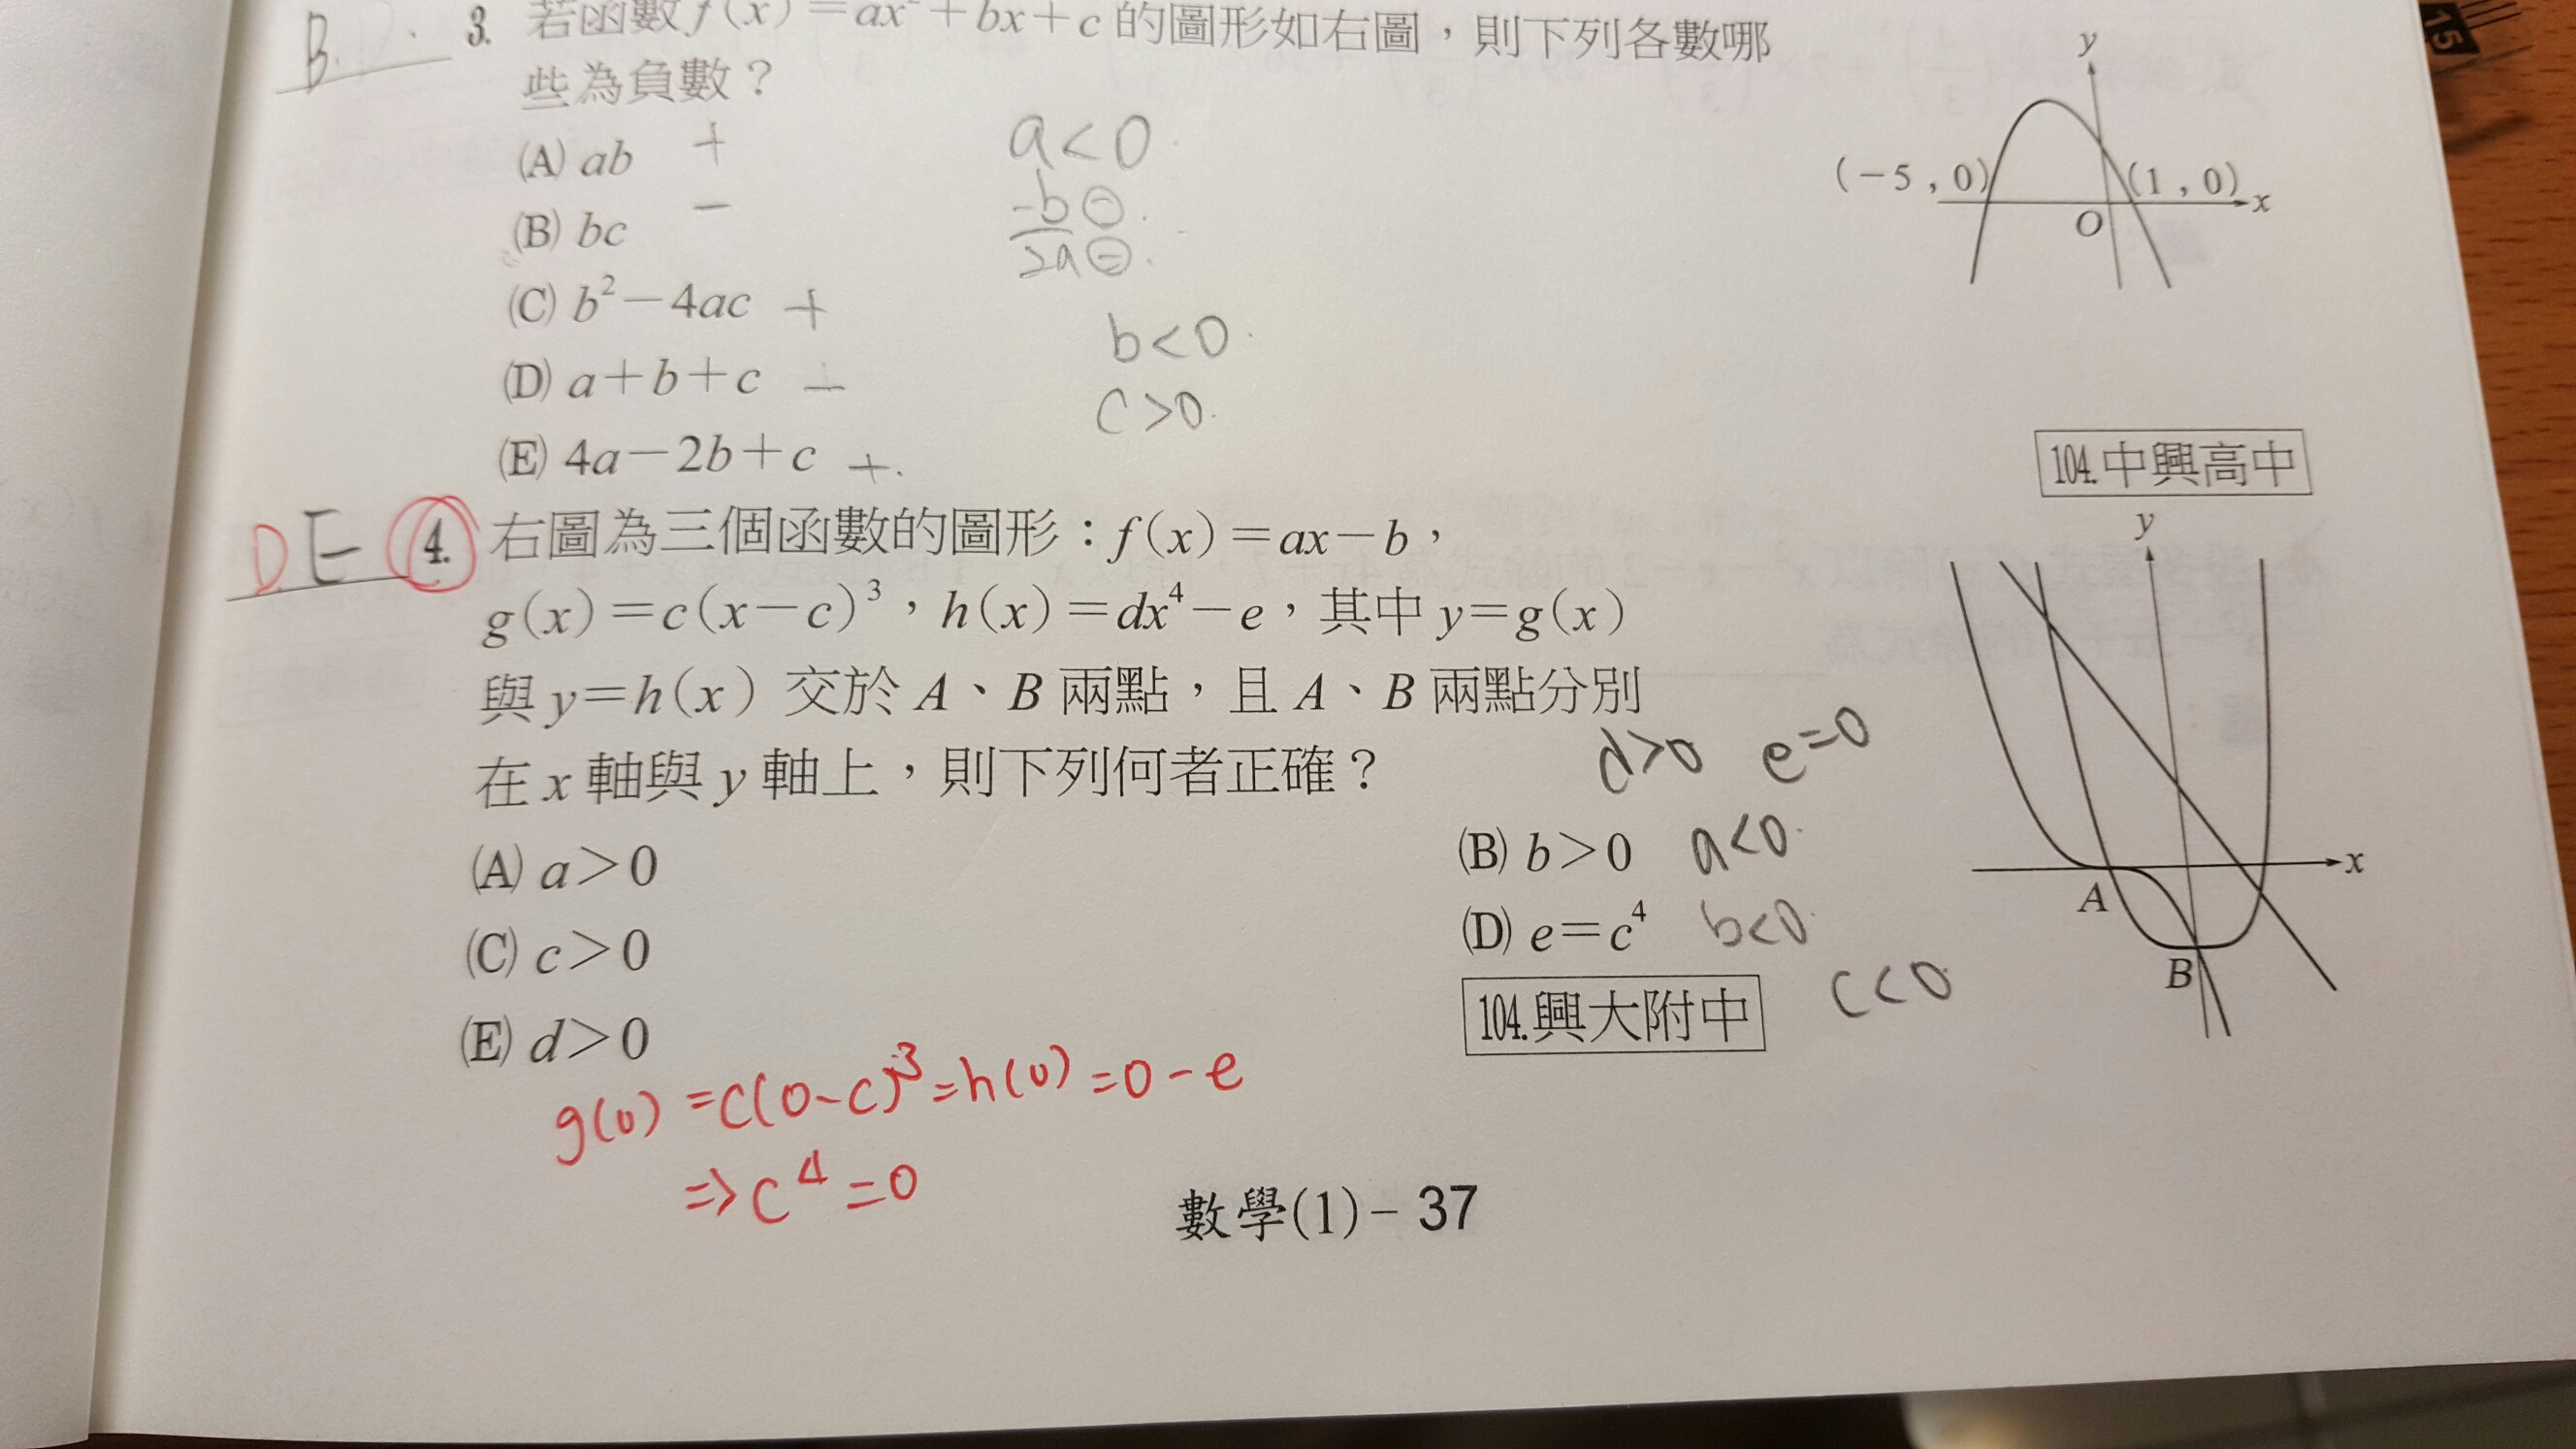 B.
3. 若函數 f(x)=ax²+bx+c 的圖形如右圖，則下列各數哪
些為負數？
(A) ab +
(B) bc −
(C) b²−4ac +
(D) a+b+c
(E) 4a−2b+c +.
a<0
-b ⊖
2a ⊖
b<0
c>0
y
(−5，0)
(1，0)
x
O
104.中興高中
DE 4. 右圖為三個函數的圖形：f(x)=ax−b，
g(x)=c(x−c)³，h(x)=dx⁴−e，其中 y=g(x)
與 y=h(x) 交於 A、B 兩點，且 A、B 兩點分別
在 x 軸與 y 軸上，則下列何者正確？
d>0 e=0
(A) a>0
(B) b>0 a<0
(C) c>0
(D) e=c⁴ b<0
(E) d>0
104.興大附中 c<0
y
x
A
B
g(0)=c(0-c)³=h(0)=0-e
⇒c⁴=0
數學(1)− 37
15